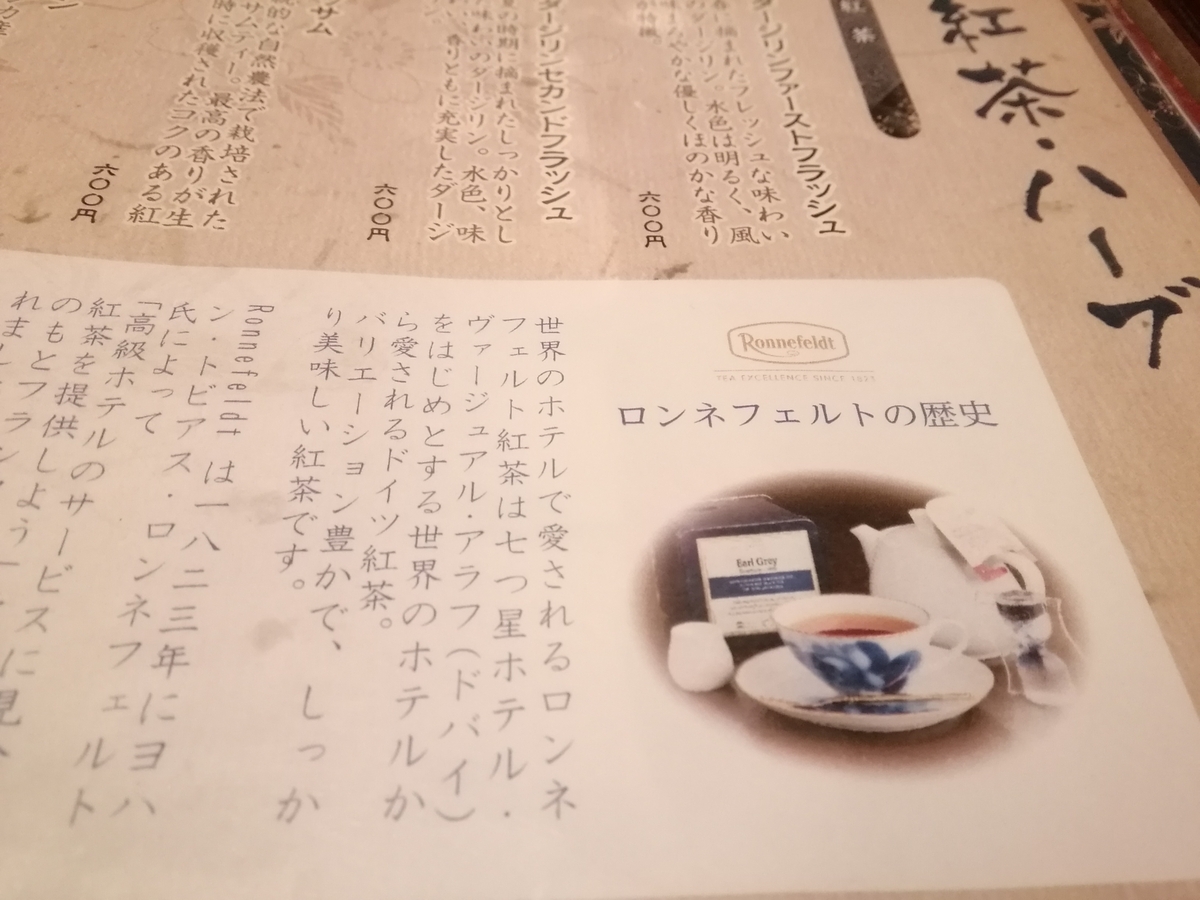 紅茶・ハーブ
紅茶
ダージリンファーストフラッシュ
摘まれたフレッシュな味わい
のダージリン。水色は明るく、風
味まろやかな優しくほのかな香り
が特徴。
六〇〇円
ダージリンセカンドフラッシュ
夏の時期に摘まれたしっかりとし
た味わいのダージリン。水色、味
香りともに充実したダージ
六〇〇円
サム
統的な自然農法で栽培された
サムティー。最高の香りが生
時に収穫されたコクのある紅
六〇〇円
Ronnefeldt
TEA EXCELLENCE SINCE 1823
ロンネフェルトの歴史
Earl Grey
世界のホテルで愛されるロンネ
フェルト紅茶は七つ星ホテル・
ヴァージュアル・アラブ(ドバイ)
をはじめとする世界のホテルか
ら愛されるドイツ紅茶。
バリエーション豊かで、しっか
り美味しい紅茶です。
Ronnefeldtは一八二三年にヨハ
ン・トビアス・ロンネフェルト
氏によって
「高級ホテルのサービスに見
紅茶を提供しよう
のもとフラン
れまし